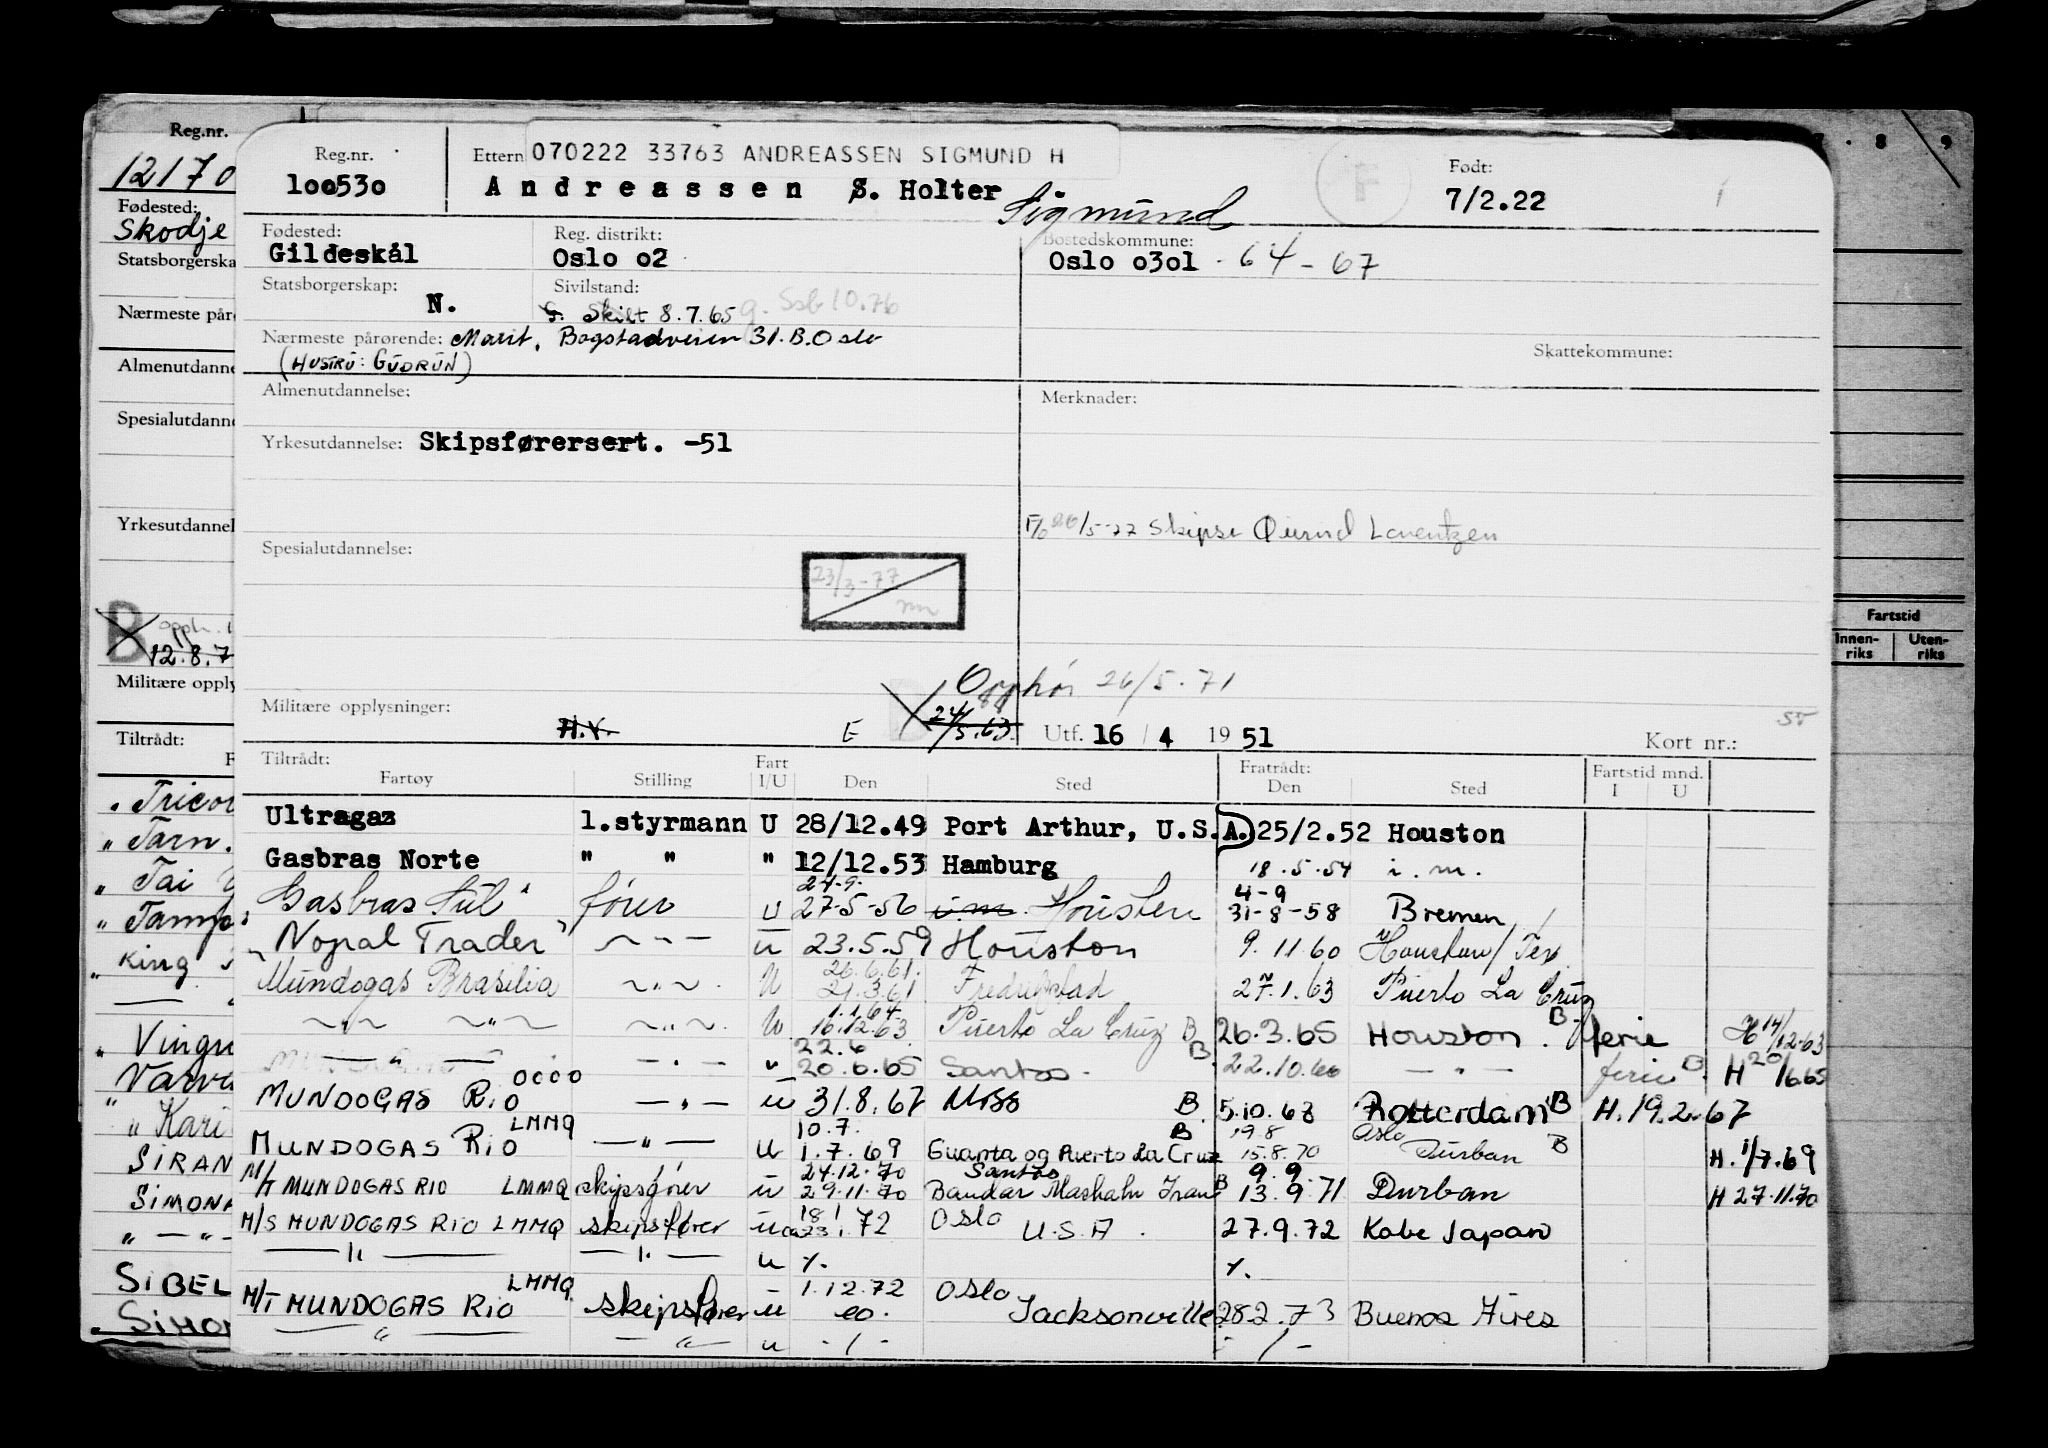 Reg.nr.
12170
Fødested:
Skodje
Statsborgerska
Nærmeste pår
Almenutdann
Spesialutdann
Yrkesutdannel
B
12.8.7
Militære opply
Tiltrådt:
Tarn.
Tai
King
SIRAN
SIMON
SIBEL
8 9
Fartstid
Innen-riks Uten-riks
Reg.nr. Ettern 070222 33763 ANDREASSEN SIGMUND H F Født:
1oo53o Andreassen S. Holter Sigmund 7/2.22
Fødested: Reg. distrikt: Bostedskommune:
Gildeskål Oslo o2 Oslo o3o1 - 64 - 67
Statsborgerskap: Sivilstand:
N. G. Skilt 8.7.65 g. Ssb 10.76
Nærmeste pårørende: Marit, Bogstadveien 31.B.Oslo
(HUSTRU: GUDRUN) Skattekommune:
Almenutdannelse: Merknader:
Yrkesutdannelse: Skipsførersert. -51
F/o 26/5-77 Skipsr Øivind Lorentzen
Spesialutdannelse:
23/3-77
Opphør 26/5.71
Militære opplysninger: H.V. E 24/5.63. Utf. 16 / 4 19 51 Kort nr.:
Tiltrådt: Fart Fratrådt: Fartstid mnd.
Fartøy Stilling I/U Den Sted Den Sted I U
Ultragaz 1.styrmann U 28/12.49 Port Arthur, U.S.A. 25/2.52 Houston
Gasbras Norte " " " 12/12.53 Hamburg 18.5.54 i.m.
24.9. 4-9
"Gasbras Sul" fører U 27-5-56 i.m. Housten 31-8-58 Bremen
"Nopal Trader" — " — u 23.5.59 Houston 9.11.60 Houston/Tex
26.6.61.
Mundogas Brasilia — " — U 21.3.61 Fredrikstad 27.1.63 Puerto La Cruz
1.1.64
— " — — " — — " — U 16.12.63 Puerto La Cruz B 26.3.65 Houston. B. ferie H 14/12-63
22.6
— " — — " — " 20.6.65 Santos. B. 22.10.66 — " — ferie B. H 20/6.65
0000
MUNDOGAS RIO — " — u 31.8.67 Moss B 5.10.68 Rotterdam B H.19.2.67
LMMQ 10.7. B 19.8 Oslo
MUNDOGAS RIO — " — u 1.7.69 Guanta og Puerto La Cruz 15.8.70 Durban B H.1/7.69
24.12.70 Santos 9.9.
M/T MUNDOGAS RIO LMMQ skipsfører u 29.11.70 Bandar Mashahr Iran B 13.9.71 Durban H 27.11.70
18.1 Oslo
M/S MUNDOGAS RIO LMMQ skipsfører u ca 23.1.72 U.S.A. 27.9.72 Kobe Japan
— " — — " — u %. %.
LMMQ 1.12.72 Oslo
M/T MUNDOGAS RIO skipsfører u co. Jacksonville 28.2.73 Buenos Aires
— " — — " — u - / - - / -